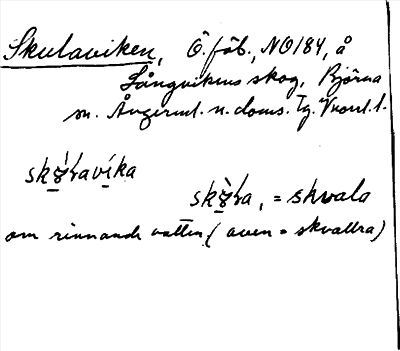 Skulaviken, Ö. fäb., NO184, å
Långvikens skog, Björna
sn. Ångerml. n. doms. tg. Vnorrl. l.
skɷ́lavíka
skɷ̀la, = skvala
om rinnande vatten (även = skvallra)